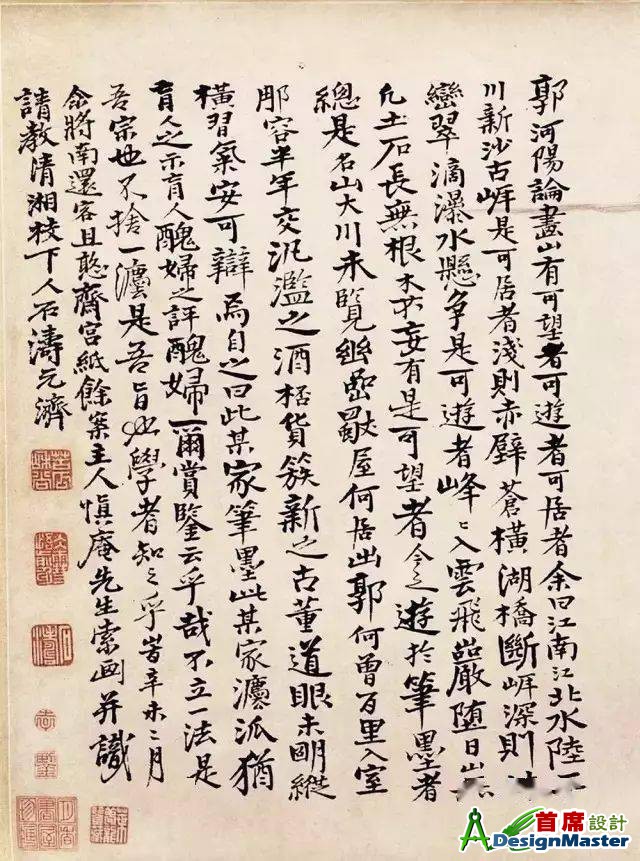 郭河陽論畫山有可望者可遊者可居者余曰江南江北水陸平
川新沙古岸是可居者淺則赤壁蒼橫湖橋斷岸深則
巒翠滴瀑水懸爭是可遊者峰〻入雲飛巖墮日山
凡土石長無根木不妄有是可望者今之遊於筆墨者
總是名山大川未覽幽巖獨屋何居出郭何曾百里入室
那容半年交汎濫之酒桮貨簇新之古董道眼未明縱
橫習氣安可辯焉自之曰此某家筆墨此某家灋派猶
盲人之示盲人醜婦之評醜婦爾賞鑒云乎哉不立一法是
吾宗也不捨一灋是吾旨也學者知之乎旹辛未二月
余將南還客且憨齋宮紙餘案主人慎庵先生索畫并識
請教清湘枝下人石濤元濟
首席設計
DesignMaster